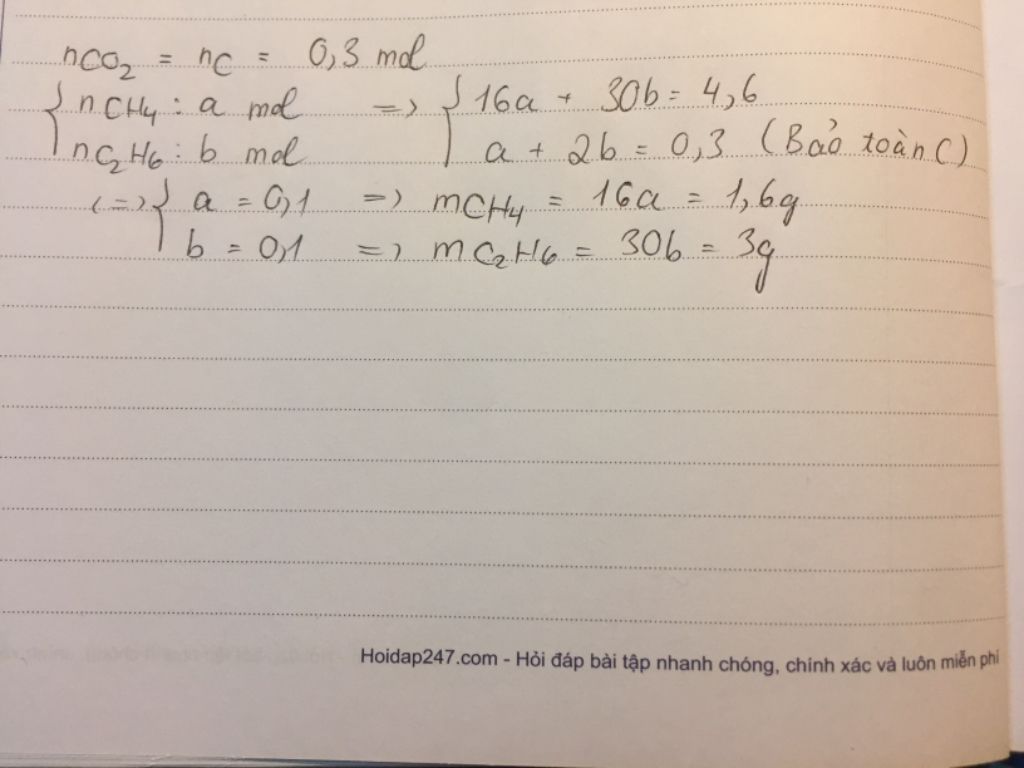 nCO₂ = nC = 0,3 mol
{ nCH₄ : a mol => { 16a + 30b = 4,6
nC₂H₆ : b mol a + 2b = 0,3 (Bảo toàn C)
(=) { a = 0,1 => mCH₄ = 16a = 1,6g
b = 0,1 => mC₂H₆ = 30b = 3g
Hoidap247.com - Hỏi đáp bài tập nhanh chóng, chính xác và luôn miễn phí